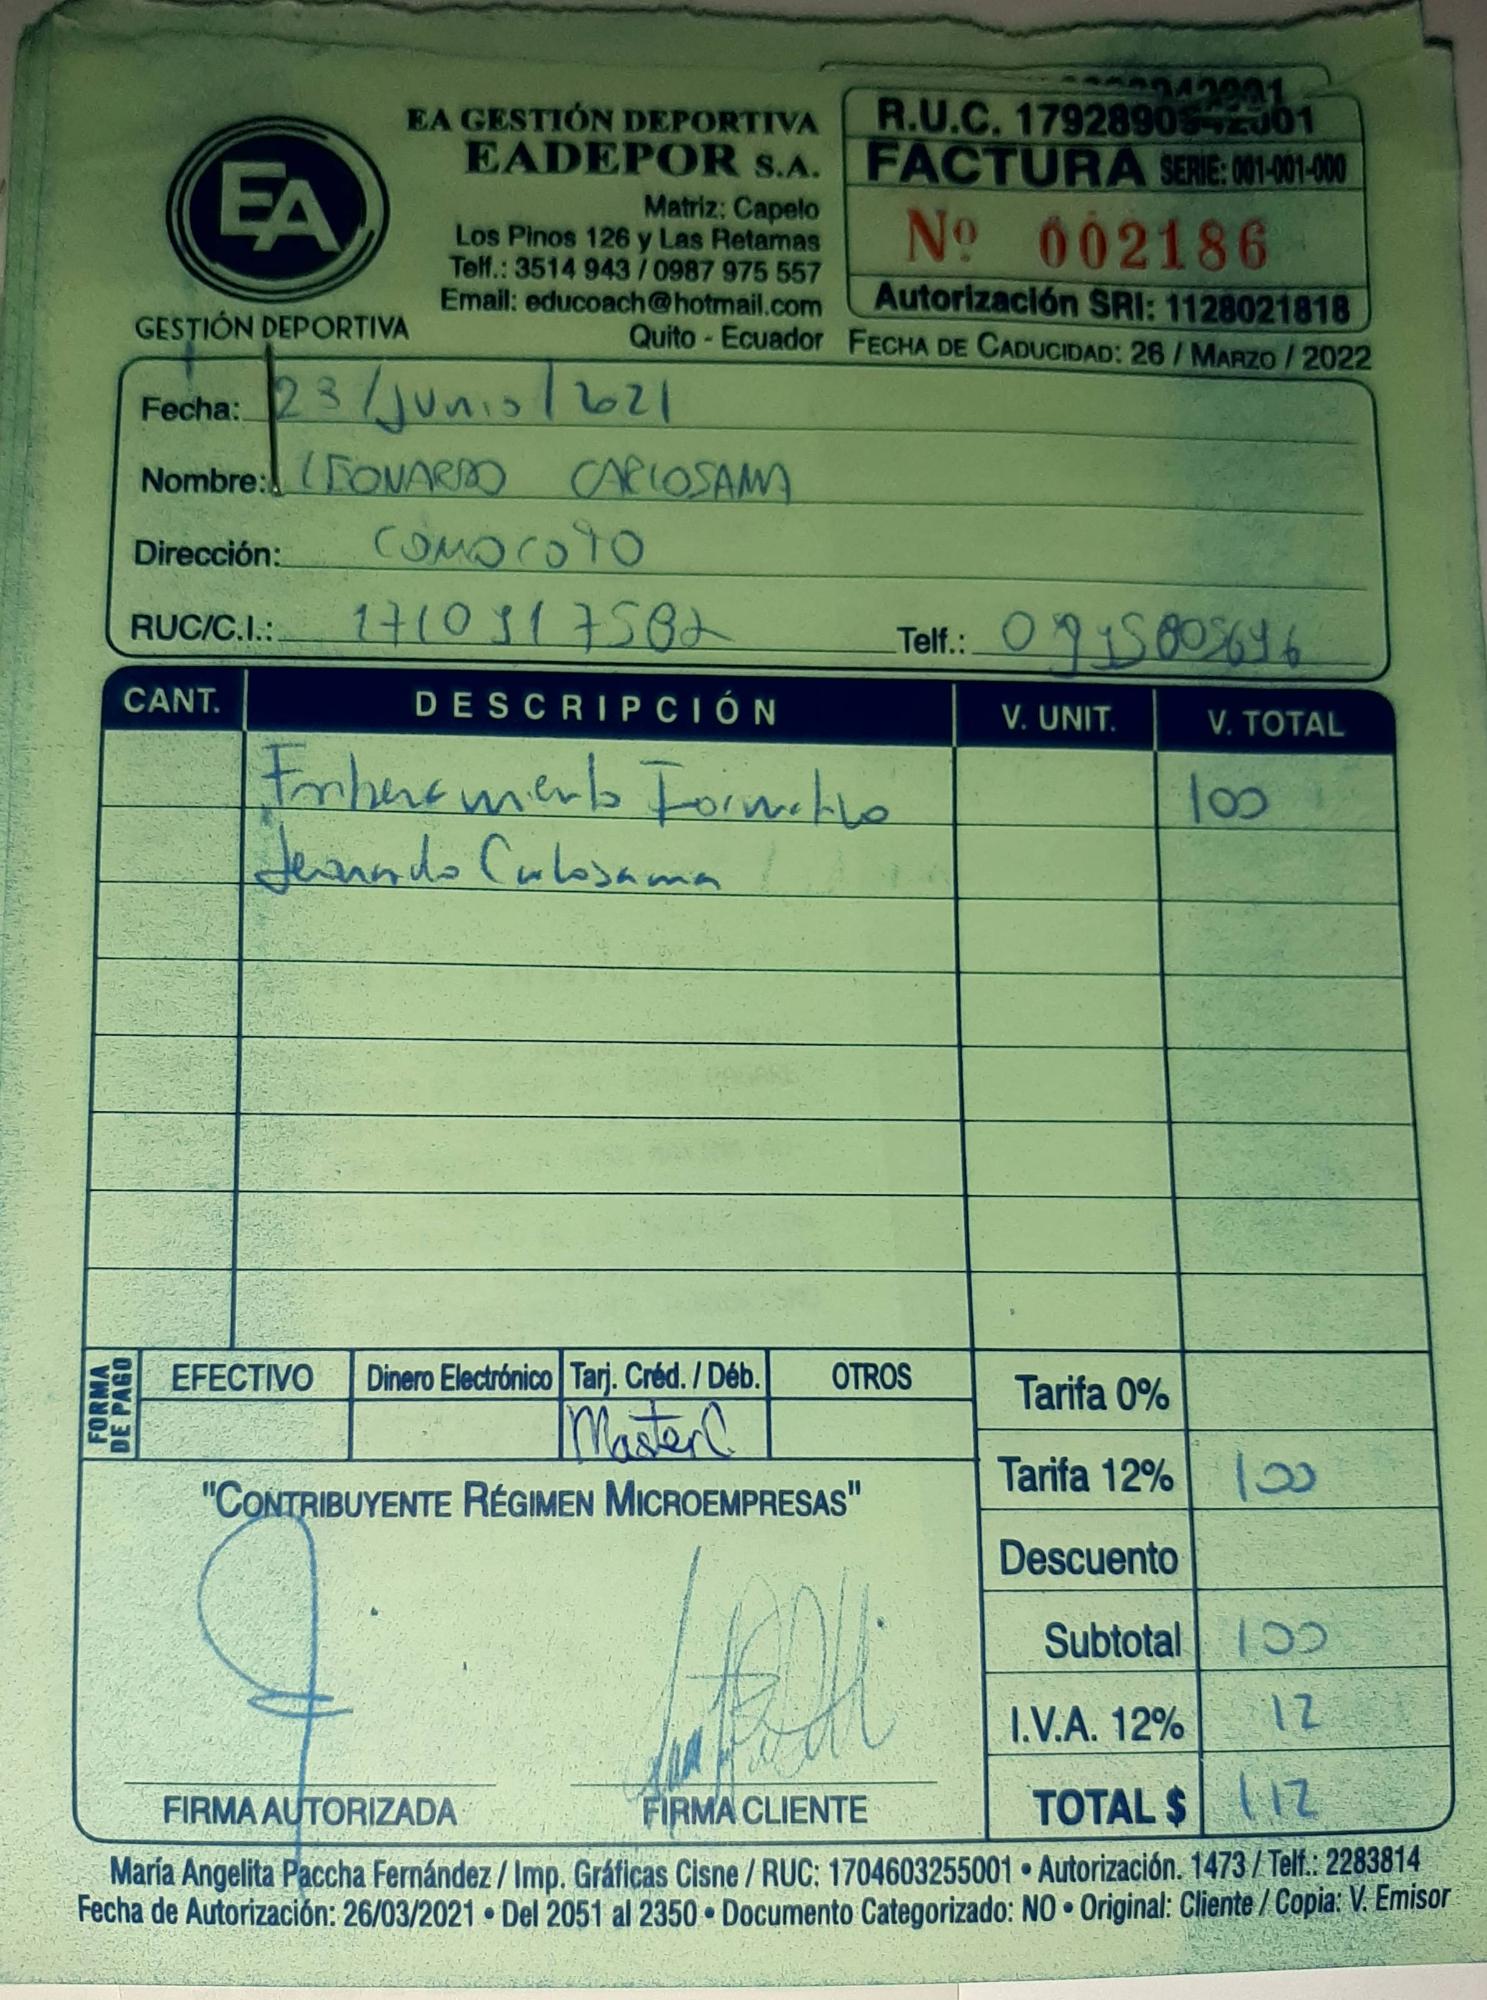 EA GESTIÓN DEPORTIVA
EADEPOR S.A.
Matriz: Capelo
Los Pinos 126 y Las Retamas
Telf.: 3514 943 / 0987 975 557
Email: educoach@hotmail.com
Quito - Ecuador
EA
GESTIÓN DEPORTIVA
R.U.C.
FACTURA SERIE: 001-001-000
Nº 002186
Autorización SRI: 1128021818
FECHA DE CADUCIDAD: 26 / MARZO / 2022
Fecha: 23/Junio/2021
Nombre: LEONARDO CARLOSAMA
Dirección: CONOCOTO
RUC/C.I.:
Telf.:
CANT. DESCRIPCIÓN V. UNIT. V. TOTAL
Entrenamiento Formativo 100
Leonardo Carlosama
FORMA DE PAGO
EFECTIVO Dinero Electrónico Tarj. Créd. / Déb. OTROS
MasterC
Tarifa 0%
Tarifa 12% 100
Descuento
Subtotal 100
I.V.A. 12% 12
TOTAL $ 112
"CONTRIBUYENTE RÉGIMEN MICROEMPRESAS"
FIRMA AUTORIZADA FIRMA CLIENTE
María Angelita Paccha Fernández / Imp. Gráficas Cisne / RUC: 1704603255001 • Autorización. 1473 / Telf.: 2283814
Fecha de Autorización: 26/03/2021 • Del 2051 al 2350 • Documento Categorizado: NO • Original: Cliente / Copia: V. Emisor